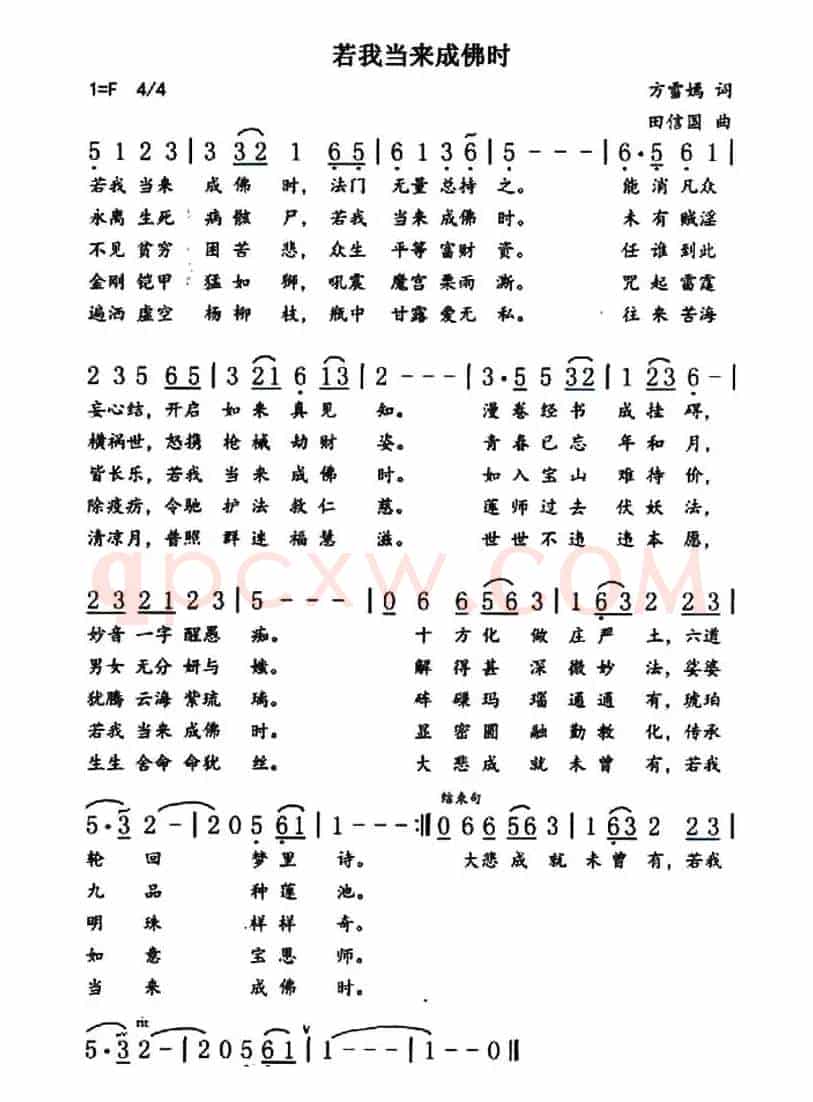 若我当来成佛时
1=F 4/4
方雪嫣 词
田信国 曲
5 1 2 3 | 3 32 1 65 | 6 1 3 6 | 5 - - - | 6·5 6 1 |
若我 当来 成 佛 时, 法门 无量 总持 之。 能 消 凡众
永离 生死 病 骸 尸, 若我 当来 成佛 时。 未 有 贼淫
不见 贫穷 困 苦 悲, 众生 平等 富财 资。 任 谁 到此
金刚 铠甲 猛 如 狮, 吼震 魔宫 栗雨 澌。 咒 起 雷霆
遍洒 虚空 杨 柳 枝, 瓶中 甘露 爱无 私。 往 来 苦海
2 3 5 65 | 3 21 6 13 | 2 - - - | 3·5 5 32 | 1 23 6 - |
妄心 结, 开启 如 来 真 见 知。 漫 卷 经 书 成 挂 碍,
横祸 世, 怒携 枪 械 劫 财 姿。 青 春 已 忘 年 和 月,
皆长 乐, 若我 当 来 成 佛 时。 如 入 宝 山 难 待 价,
除疫 疠, 令驰 护 法 救 仁 慈。 莲 师 过 去 伏 妖 法,
清凉 月, 普照 群 迷 福 慧 滋。 世 世 不 违 违 本 愿,
qpcxw.COM
23 21 23 | 5 - - - | 0 6 6 56 3 | 1 63 2 23 |
妙音 一字 醒愚 痴。 十 方 化 做 庄 严 土, 六道
男女 无分 妍与 媸。 解 得 甚 深 微 妙 法, 娑婆
犹腾 云海 紫琉 璃。 砗 磲 玛 瑙 通 通 有, 琥珀
若我 当来 成佛 时。 显 密 圆 融 勤 教 化, 传承
生生 舍命 命犹 丝。 大 悲 成 就 未 曾 有, 若我
结束句
5·3 2 - | 2 0 5 61 | 1 - - - :|| 0 6 6 56 3 | 1 63 2 23 |
轮 回 梦 里 诗。 大 悲 成 就 未 曾 有, 若我
九 品 种 莲 池。
明 珠 样 样 奇。
如 意 宝 恩 师。
当 来 成 佛 时。
rit
5·3 2 - | 2 0 5 61 | 1 - - - | 1 - - 0 ||